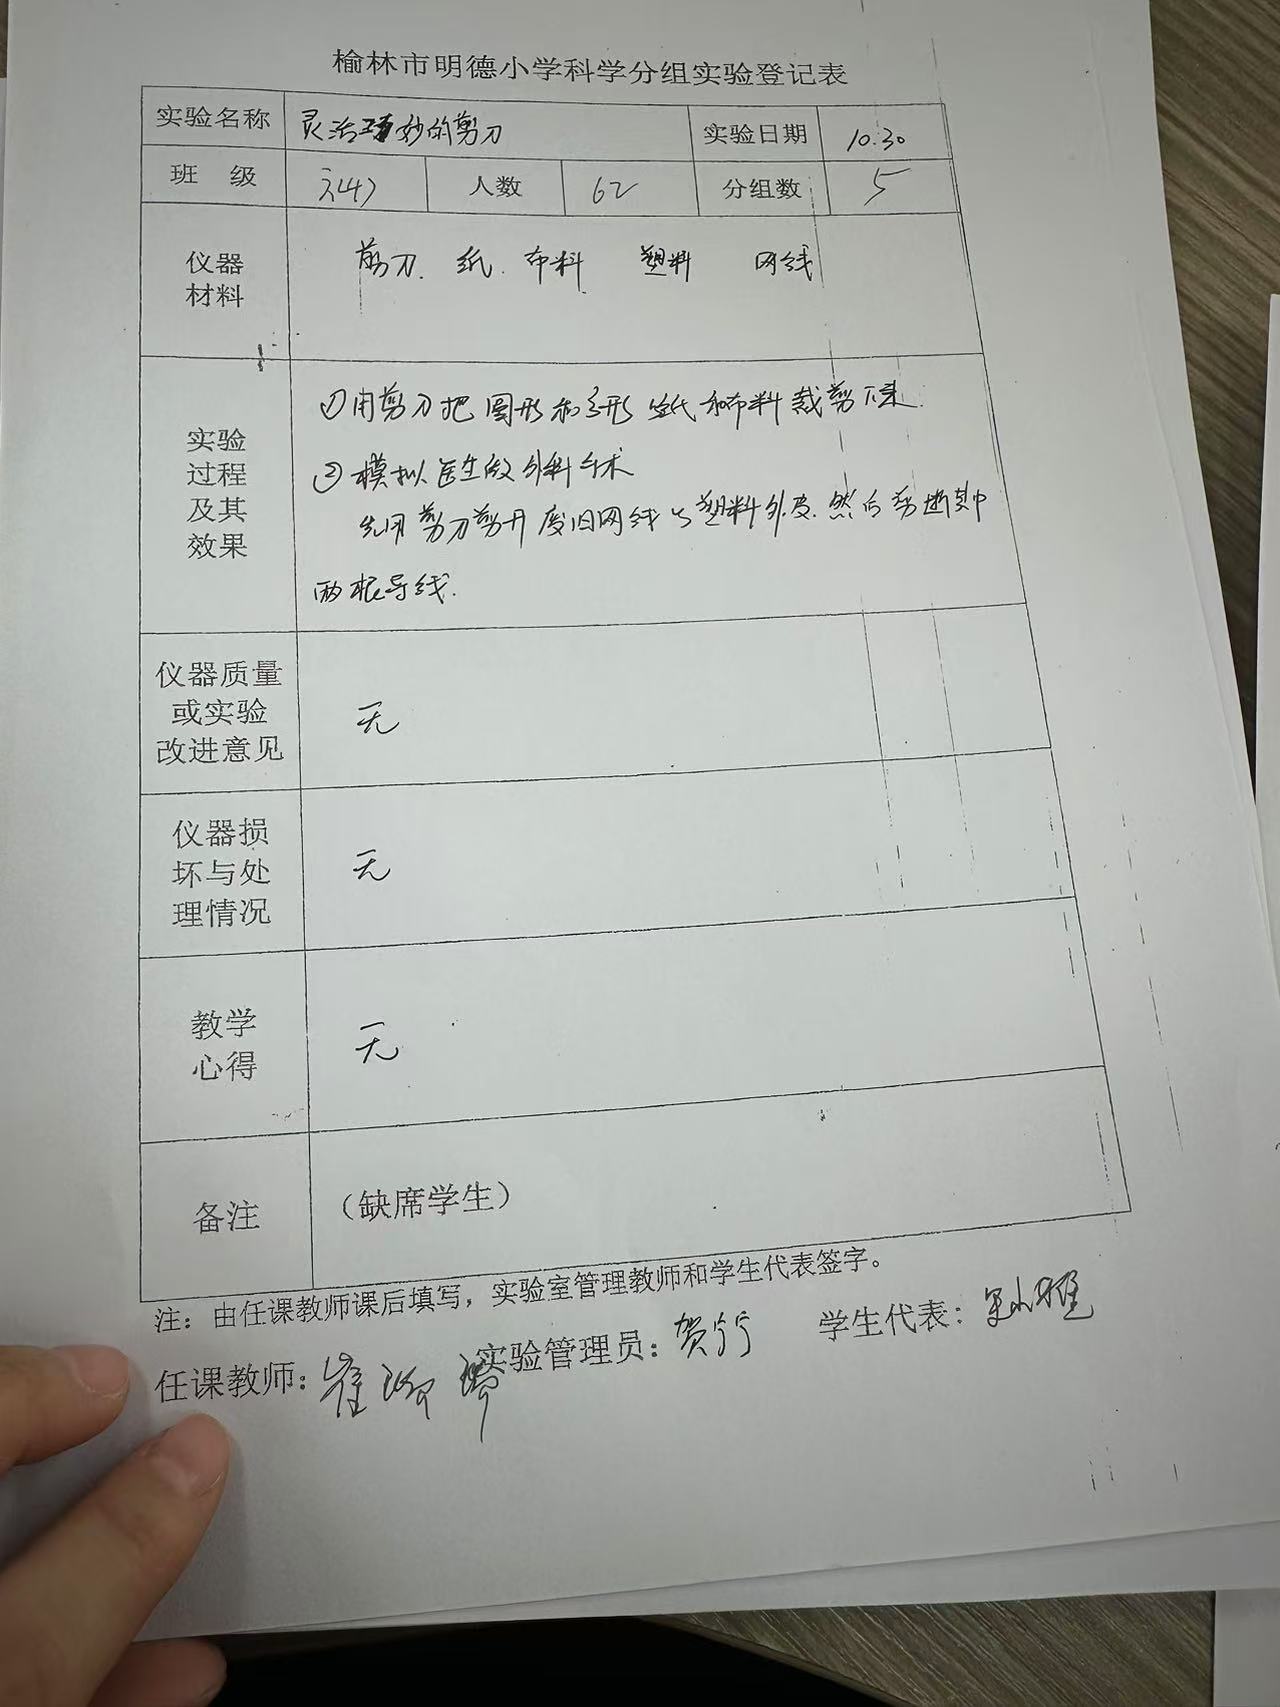 榆林市明德小学科学分组实验登记表
实验名称 灵活巧妙的剪刀 实验日期 10.30
班 级 六(4) 人数 62 分组数 5
仪器
材料
剪刀. 纸. 布料 塑料 网线
实验
过程
及其
效果
①用剪刀把圆形和方形 纸和布料裁剪下来.
②模拟医生做外科手术
先用剪刀剪开废旧网线的塑料外皮.然后剪断其中
两根导线.
仪器质量
或实验
改进意见
无
仪器损
坏与处
理情况
无
教学
心得
无
备注 (缺席学生)
注：由任课教师课后填写，实验室管理教师和学生代表签字。
任课教师：崔 实验管理员：贺宁宁 学生代表：